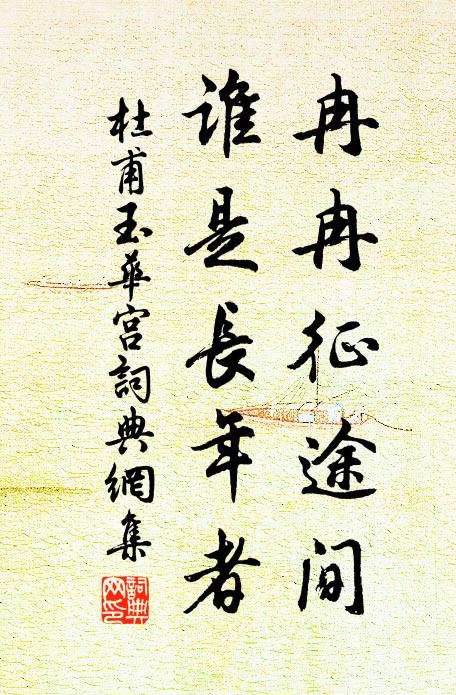 冉冉征途间
谁是長年者
杜甫玉華宫詞典網集
詞典网印